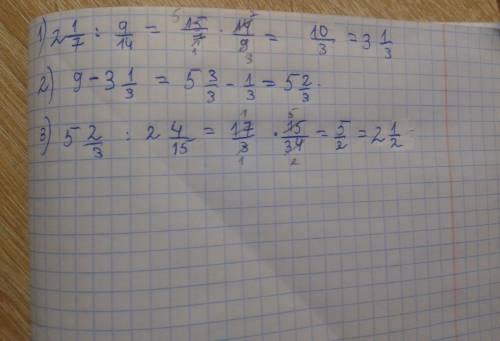 1) 2 1/7 : 9/14 = 15/7 · 14/9 = 10/3 = 3 1/3
2) 9 - 3 1/3 = 5 3/3 - 1/3 = 5 2/3.
3) 5 2/3 : 2 4/15 = 17/3 · 15/34 = 5/2 = 2 1/2